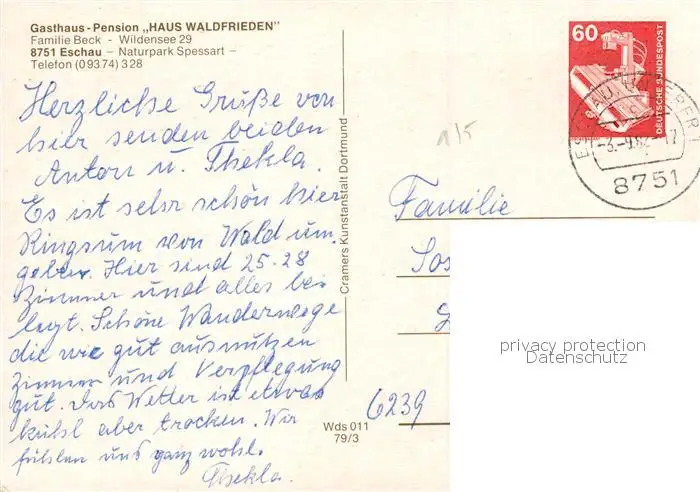 Gasthaus-Pension „HAUS WALDFRIEDEN"
Familie Beck - Wildensee 29
8751 Eschau – Naturpark Spessart –
Telefon (09374) 328
Herzliche Grüße von
hier senden beiden
Anton u. Thekla.
Es ist sehr schön hier
Ringsum von Wald um,
geben. Hier sind 25-28
Zimmer und alles be
legt. Schöne Wanderwege
die wir gut ausnutzen
Zimmer und Verpflegung
gut. Das Wetter ist etwas
kühl aber trocken. Wir
fühlen uns ganz wohl.
Thekla.
Cramers Kunstanstalt Dortmund
Wds 011
79/3
1/5
60
DEUTSCHE BUNDESPOST
-3.-9.82-17
8751
Familie
6239
privacy protection
Datenschutz